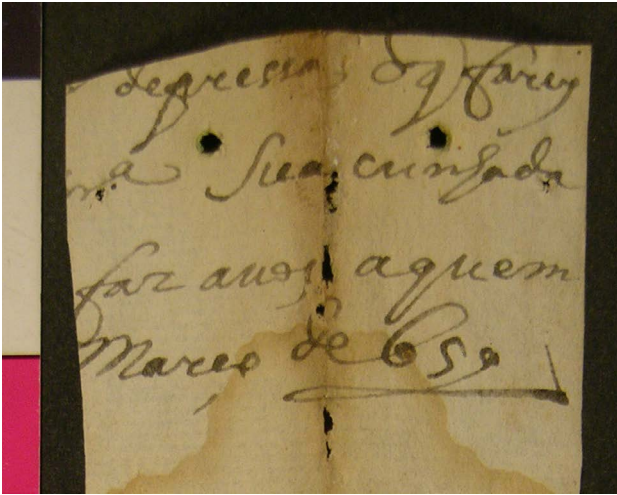 depressa dq farey
na Sua cunhada
faz a uos aquem
Março de 650